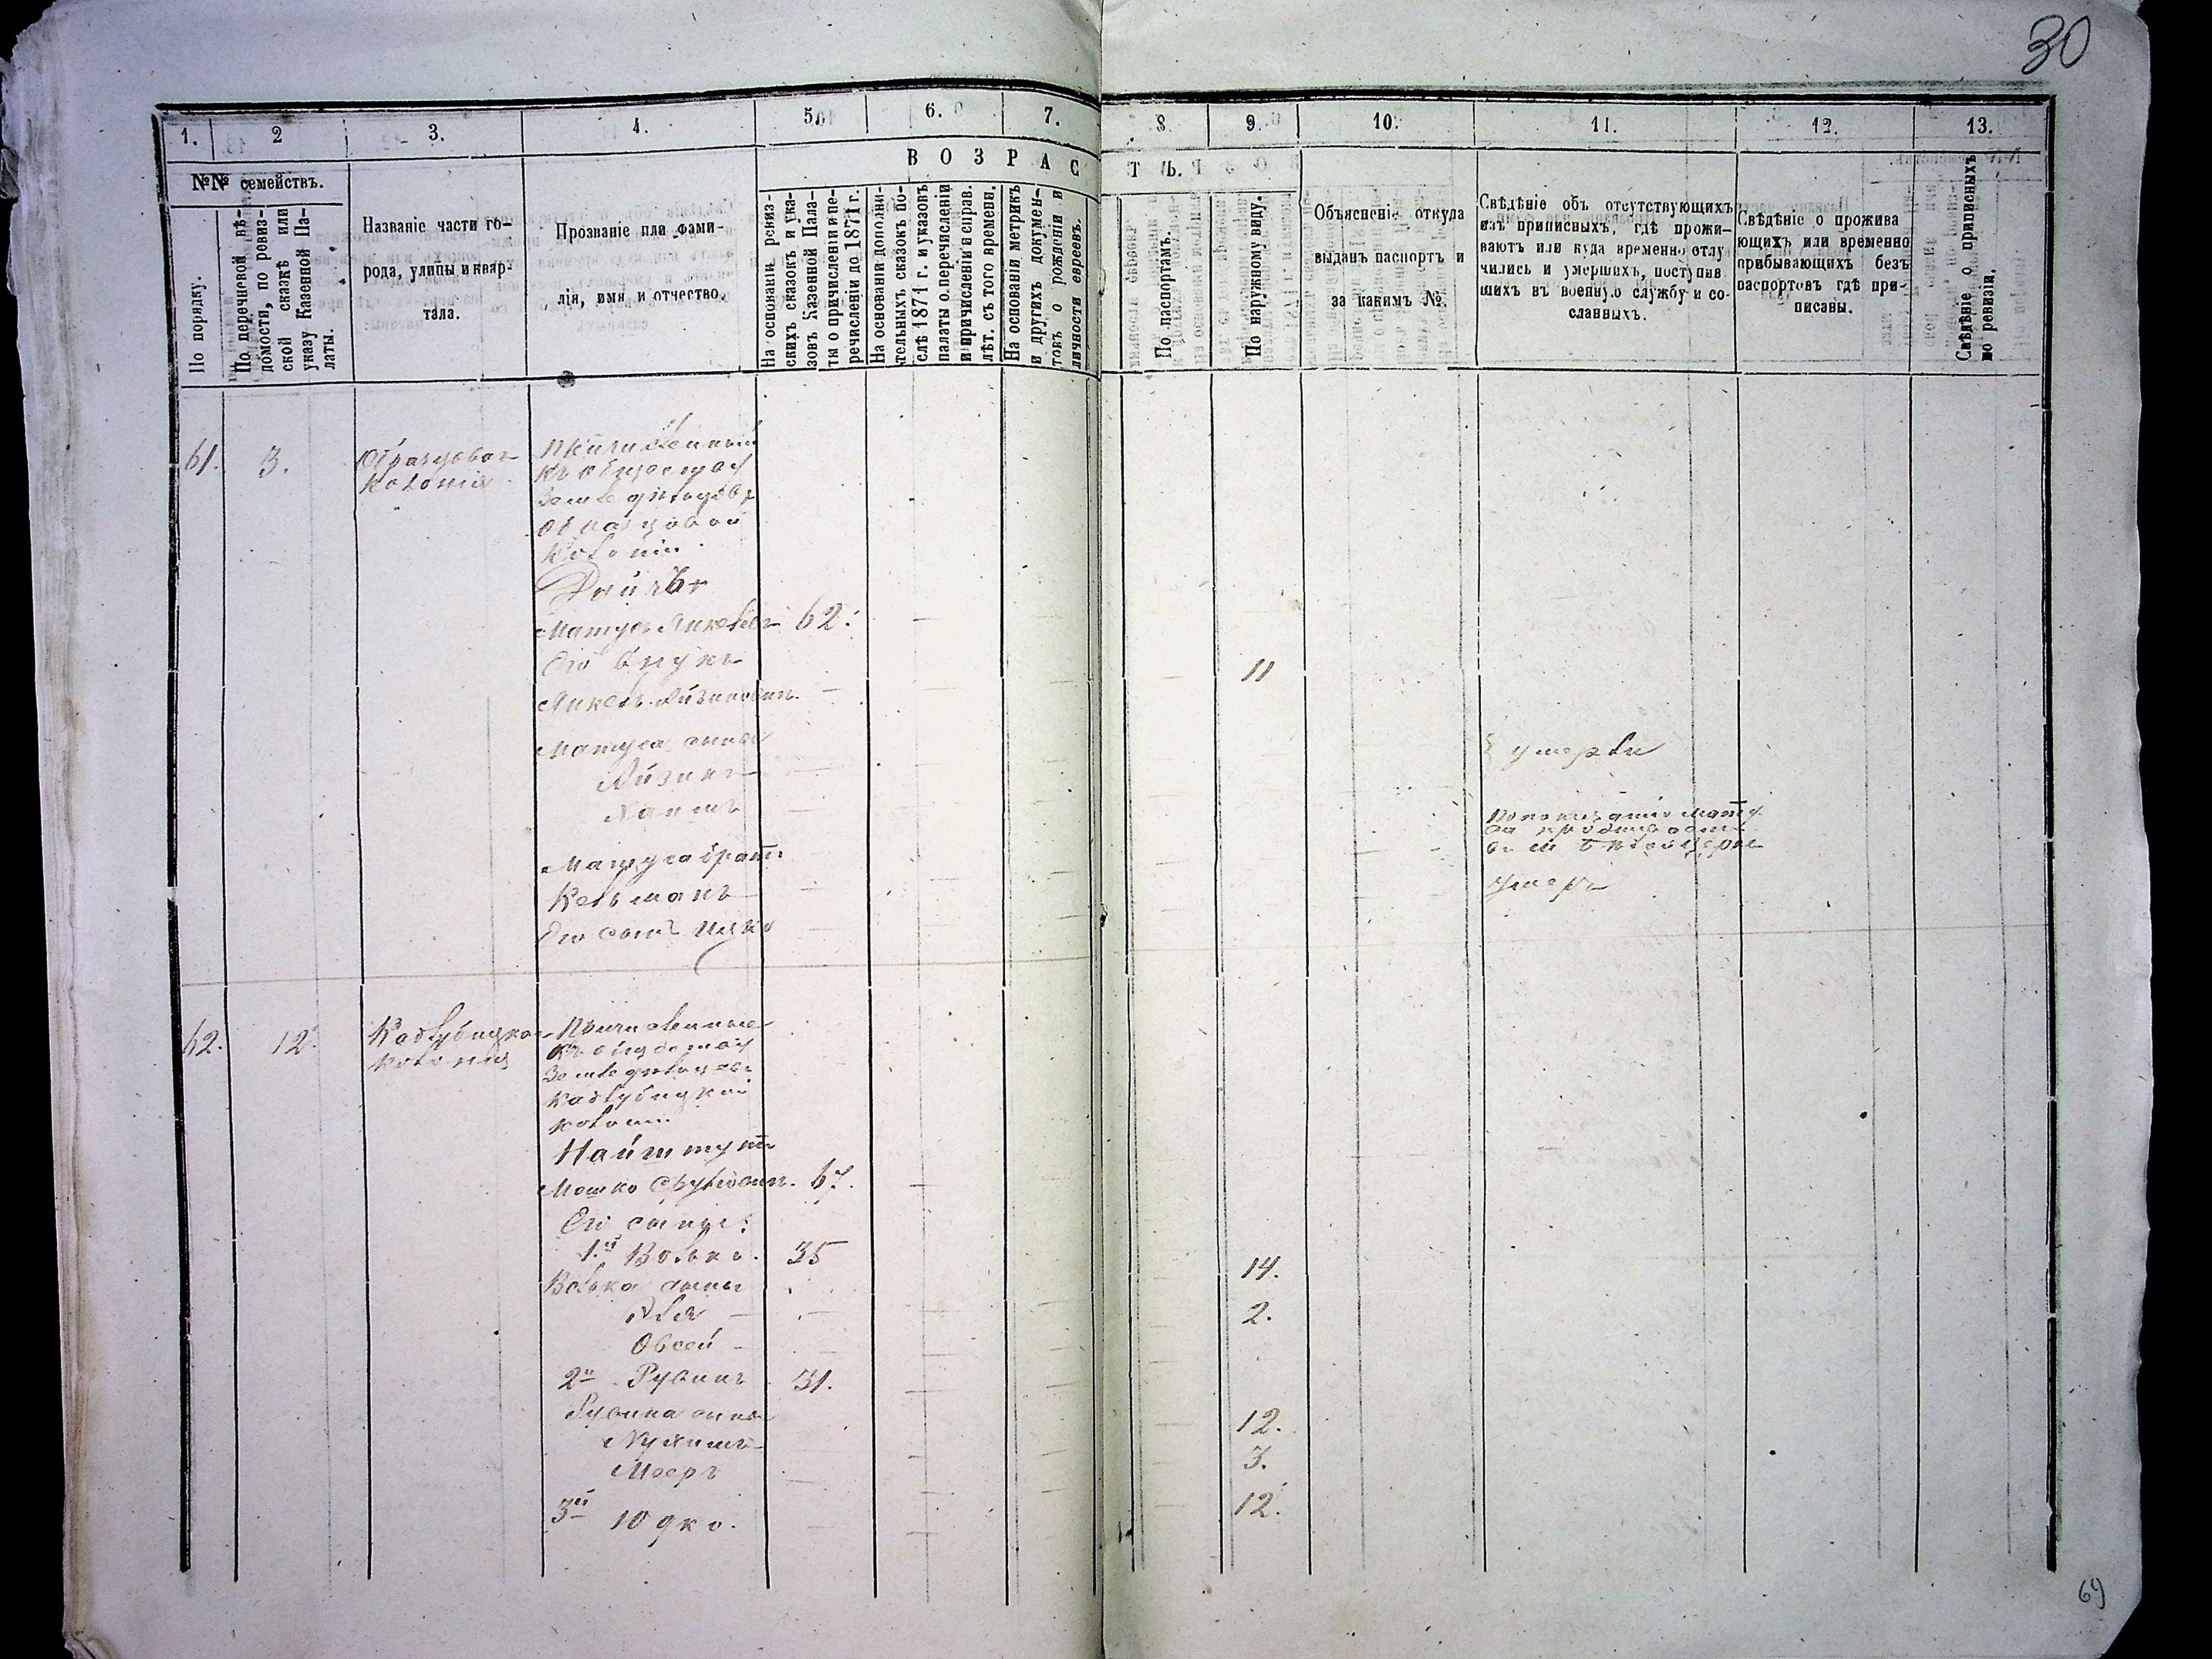 30
1.
2
3.
4.
5.
6.
7.
8.
9.
10.
11.
12.
13.
В О З Р А С Т Ъ.
№№ семействъ.
По порядку.
По перечневой вѣ-
домости, по ревиз-
ской сказкѣ или
указу Казенной Па-
латы.
Названіе части го-
рода, улицы и квар-
тала.
Прозваніе или фами-
лія, имя и отчество.
На основаніи ревиз-
скихъ сказокъ и ука-
зовъ Казенной Пала-
ты о причисленіи и пе-
речисленіи до 1871 г.
На основаніи дополни-
тельныхъ сказокъ по-
слѣ 1871 г. и указовъ
палаты о перечисленіи
и причисленіи и справ.
лѣт. съ того времени.
На основаніи метрикъ
и другихъ докумен-
товъ о рожденіи и
личности евреевъ.
По паспортамъ.
По наружному виду.
Объясненіе откуда
выданъ паспортъ и
за какимъ №.
Свѣдѣніе объ отсутствующихъ
изъ приписныхъ, гдѣ прожи-
ваютъ или куда временно отлу
чились и умершихъ, поступив
шихъ въ военную службу и со-
сланныхъ.
Свѣдѣніе о прожива
ющихъ или временно
прибывающихъ безъ
паспортовъ гдѣ при-
писаны.
Свѣдѣніе о приписныхъ
по ревизіи.
61.
3.
Образцовая
колонія
Причисленный
къ обществу
Земледѣльцевъ
Образцовой
Колоніи.
Матусъ Янкелев 62.
Его внукъ
Янкель Айзиковичъ. 11
Матуса сыны
Айзикъ
Хаимъ
умерли
Матуса братъ
Кельманъ
Его сынъ Ицко
умеръ
62.
12.
колонія
Причисленные
къ обществу
Земледѣльцевъ
колоніи
Мошко Срулевичъ. 67.
Его сыны:
1й Волько. 35
Волька сыны 14.
2.
Овсей
2й Рувинъ 31.
Рувина сыны 12.
Нухимъ 3.
Мееръ
3й Юдко. 12.
69